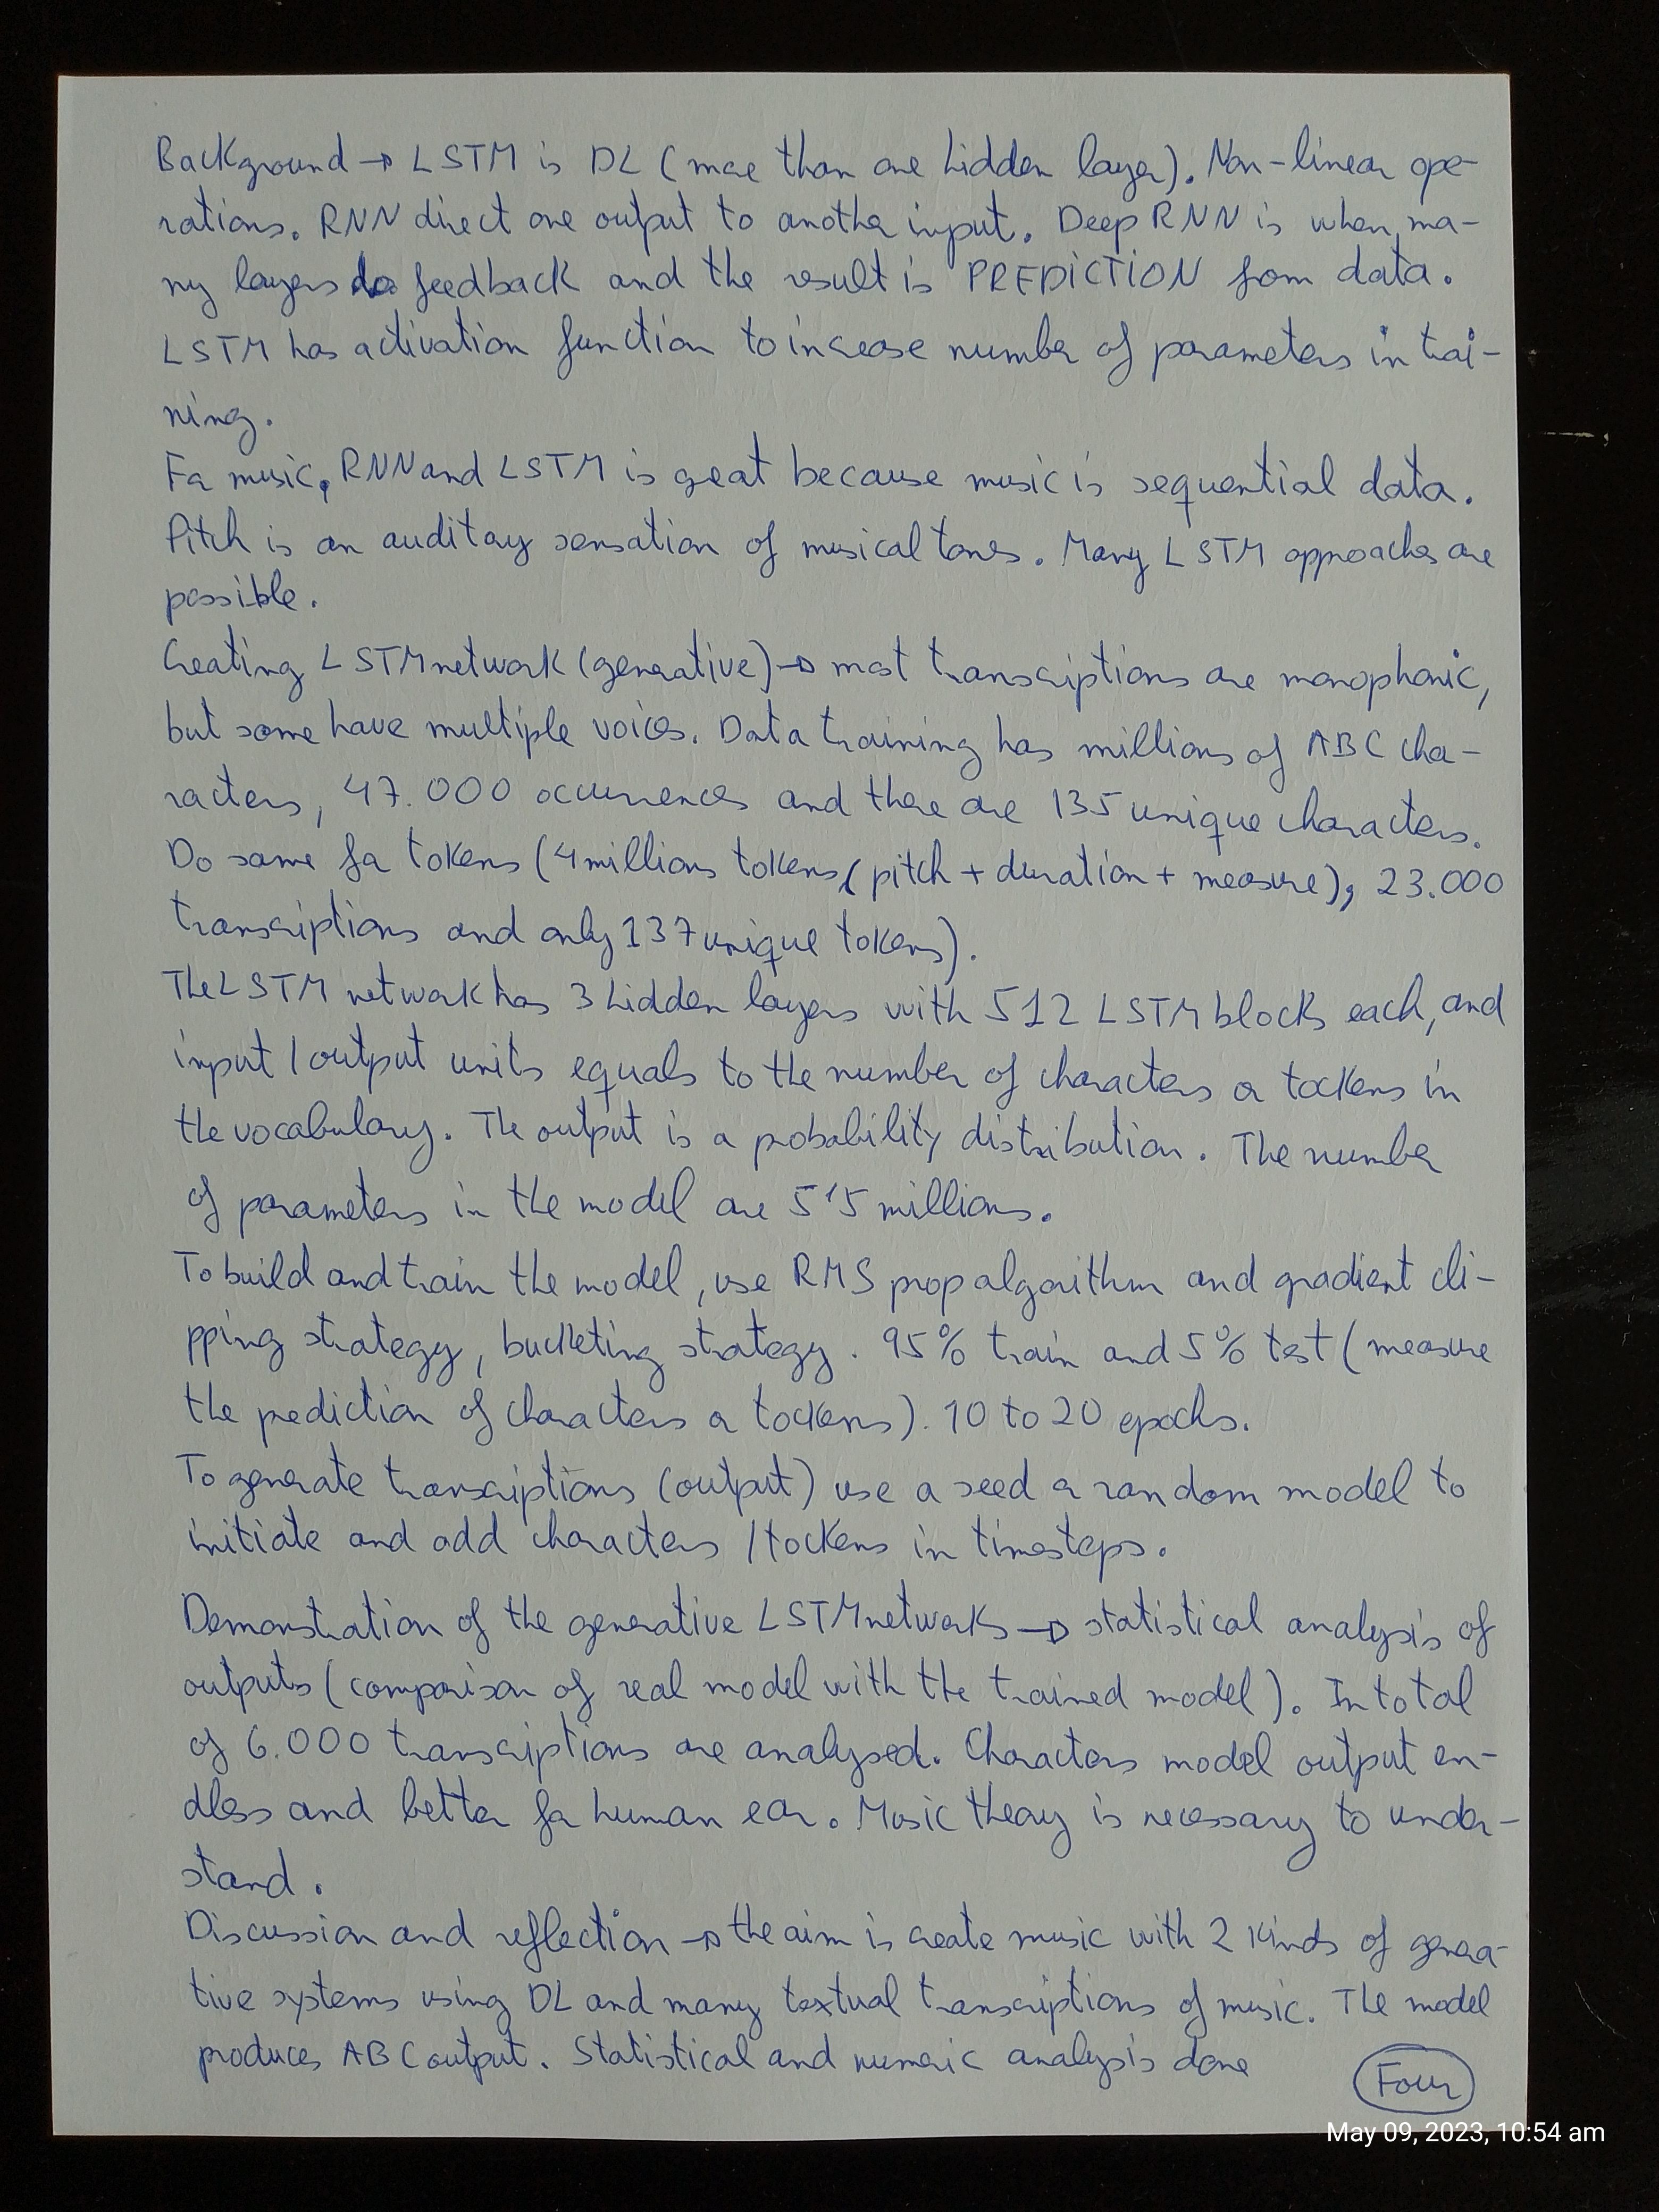 Background → LSTM is DL (more than one hidden layer). Non-linear ope-
rations. RNN direct one output to another input. Deep RNN is when ma-
ny layers do feedback and the result is PREDICTION from data.
LSTM has activation function to increase number of parameters in trai-
ning.
For music, RNN and LSTM is great because music is sequential data.
Pitch is an auditory sensation of musical tones. Many LSTM approaches are
possible.
Creating LSTM network (generative) → most transcriptions are monophonic,
but some have multiple voices. Data training has millions of ABC cha-
racters, 47.000 occurrences and there are 135 unique characters.
Do same for tokens (4 millions tokens (pitch + duration + measure), 23.000
transcriptions and only 137 unique tokens).
The LSTM network has 3 hidden layers with 512 LSTM blocks each, and
input / output units equals to the number of characters or tockens in
the vocabulary. The output is a probability distribution. The number
of parameters in the model are 5'5 millions.
To build and train the model, use RMS prop algorithm and gradient cli-
pping strategy, bucketing strategy. 95% train and 5% test (measure
the prediction of characters or tockens). 10 to 20 epochs.
To generate transcriptions (output) use a seed or random model to
initiate and add characters / tockens in timesteps.
Demonstration of the generative LSTM networks → statistical analysis of
outputs (comparison of real model with the trained model). In total
of 6.000 transcriptions are analysed. Characters model output en-
dless and better for human ear. Music theory is necessary to under-
stand.
Discussion and reflection → the aim is create music with 2 kinds of genera-
tive systems using DL and many textual transcriptions of music. The model
produces ABC output. Statistical and numeric analysis done
Four
May 09, 2023, 10:54 am